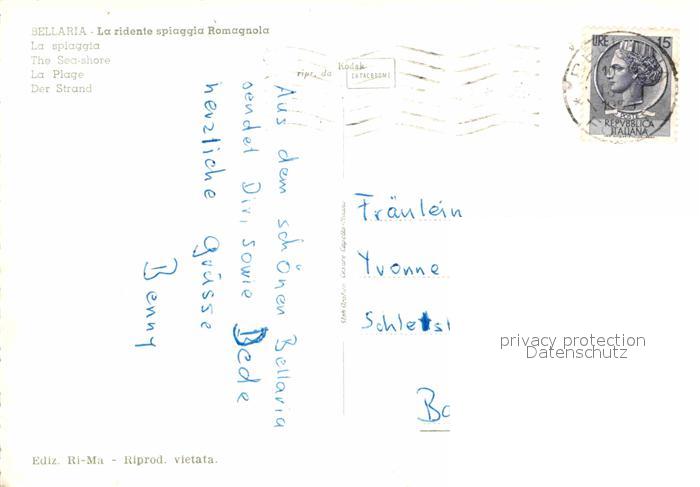 BELLARIA - La ridente spiaggia Romagnola
La spiaggia
The Sea-shore
La Plage
Der Strand
ripr. da Kodak
EKTACHROME
LIRE 15
POSTE
REPVBBLICA
ITALIANA
Aus dem schönen Bellaria
sendet Dir, sowie Bede
herzliche Grüsse
Benny
Fräulein
Yvonne
privacy protection
Datenschutz
Ediz. Ri-Ma - Riprod. vietata.